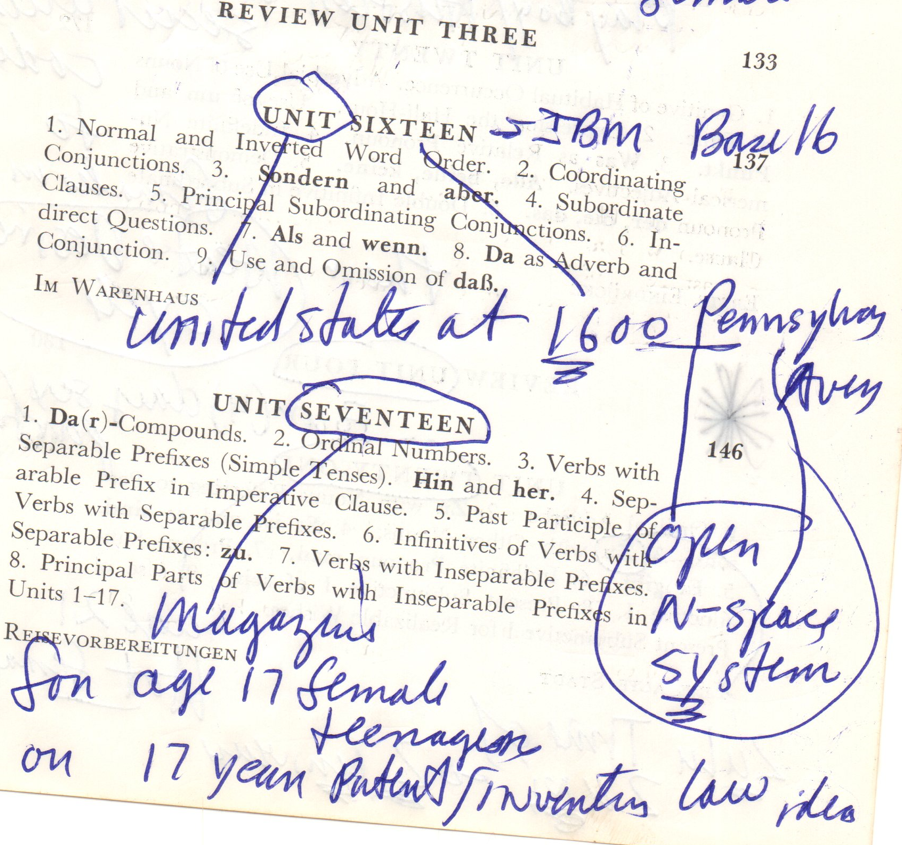 REVIEW UNIT THREE
133
UNIT SIXTEEN → IBM Base 16
137
1. Normal and Inverted Word Order. 2. Coordinating
Conjunctions. 3. Sondern and aber. 4. Subordinate
Clauses. 5. Principal Subordinating Conjunctions. 6. In-
direct Questions. 7. Als and wenn. 8. Da as Adverb and
Conjunction. 9. Use and Omission of daß.
IM WARENHAUS
United states at 1600 Pennsylvay
Aven
UNIT SEVENTEEN
146
1. Da(r)-Compounds. 2. Ordinal Numbers. 3. Verbs with
Separable Prefixes (Simple Tenses). Hin and her. 4. Sep-
arable Prefix in Imperative Clause. 5. Past Participle of
Verbs with Separable Prefixes. 6. Infinitives of Verbs with
Separable Prefixes: zu. 7. Verbs with Inseparable Prefixes.
8. Principal Parts of Verbs with Inseparable Prefixes in
Units 1–17.
Open
N-space
system
REISEVORBEREITUNGEN
Magazine
for age 17 female
teenager
on 17 year Patent/invention law idea